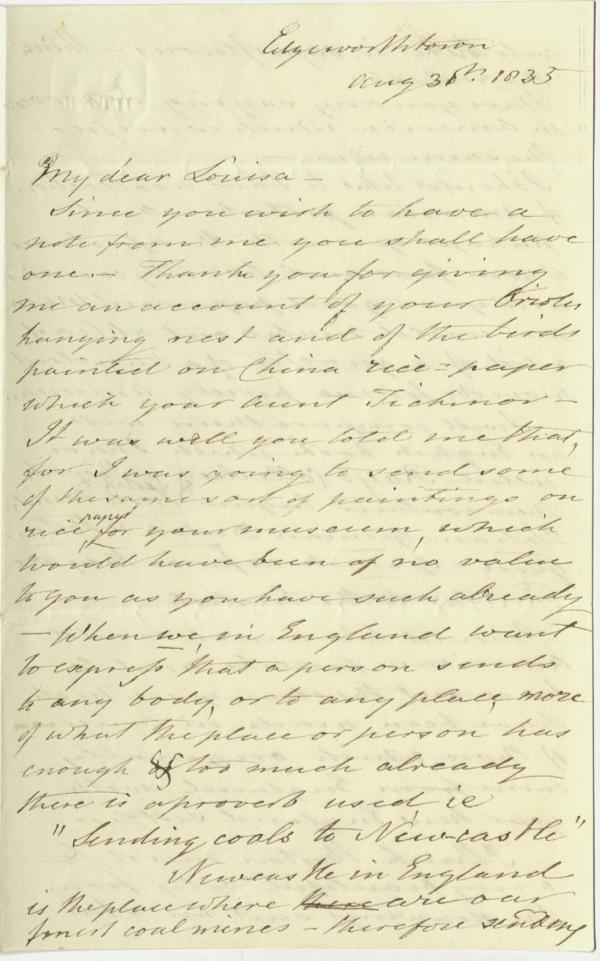 Edgeworthtown
Aug 31st. 1835
My dear Louisa –
Since you wish to have a
note from me you shall have
one. – Thank you for giving
me an account of your Orioles
hanging nest and of the birds
painted on China rice = paper
which your aunt Ticknor –
It was well you told me that,
for I was going to send some
of the same sort of paintings on
rice paper for your museum, which
would have been of no value
to you as you have such already
– When we, in England want
to express that a person sends
to any body, or to any place, more
of what the place or person has
enough or too much already
there is a proverb used ie
"Sending coals to Newcastle"
Newcastle in England
is the place where there are our
finest coal mines – therefore sending